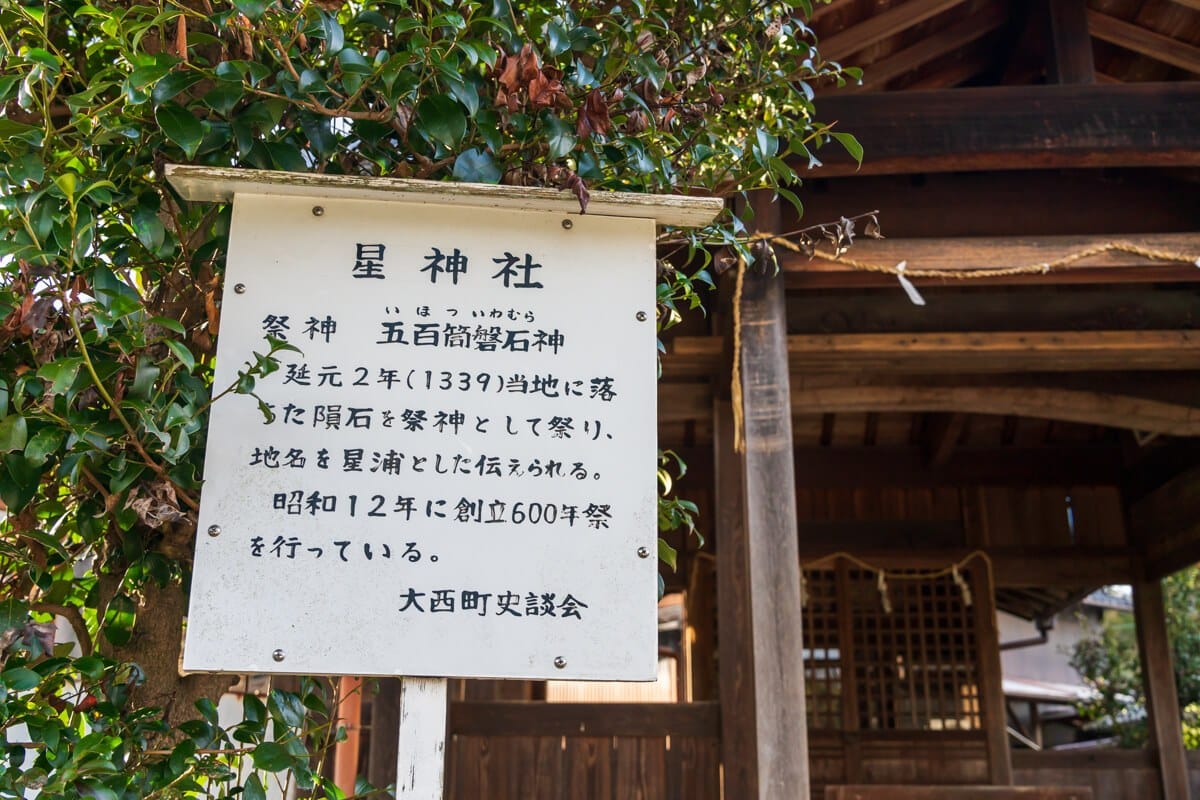 星神社
いほついわむら
祭神 五百筒磐石神
延元2年(1339)当地に落
た隕石を祭神として祭り、
地名を星浦とした伝えられる。
昭和12年に創立600年祭
を行っている。
大西町史談会